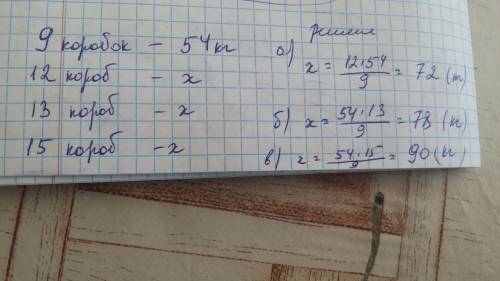 9 коробок - 54 кг
12 короб - x
13 короб - x
15 короб - x
Решение
а) x = 12·54/9 = 72 (кг)
б) x = 54·13/9 = 78 (кг)
в) x = 54·15/9 = 90 (кг)